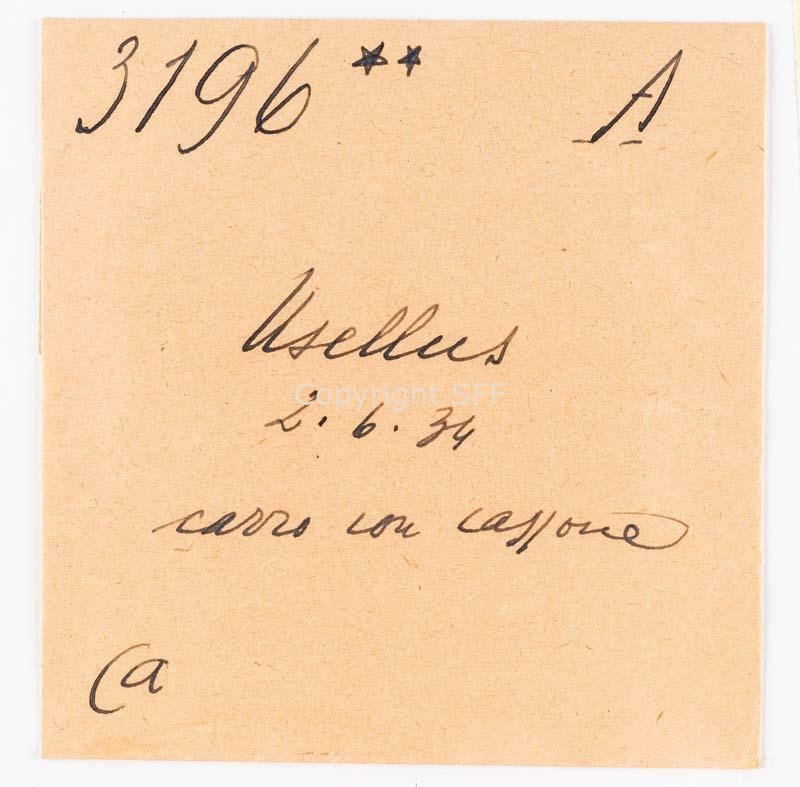 3196 ** A
Usellus
Copyright SFF
2.6.34
carro con cassone
Ca